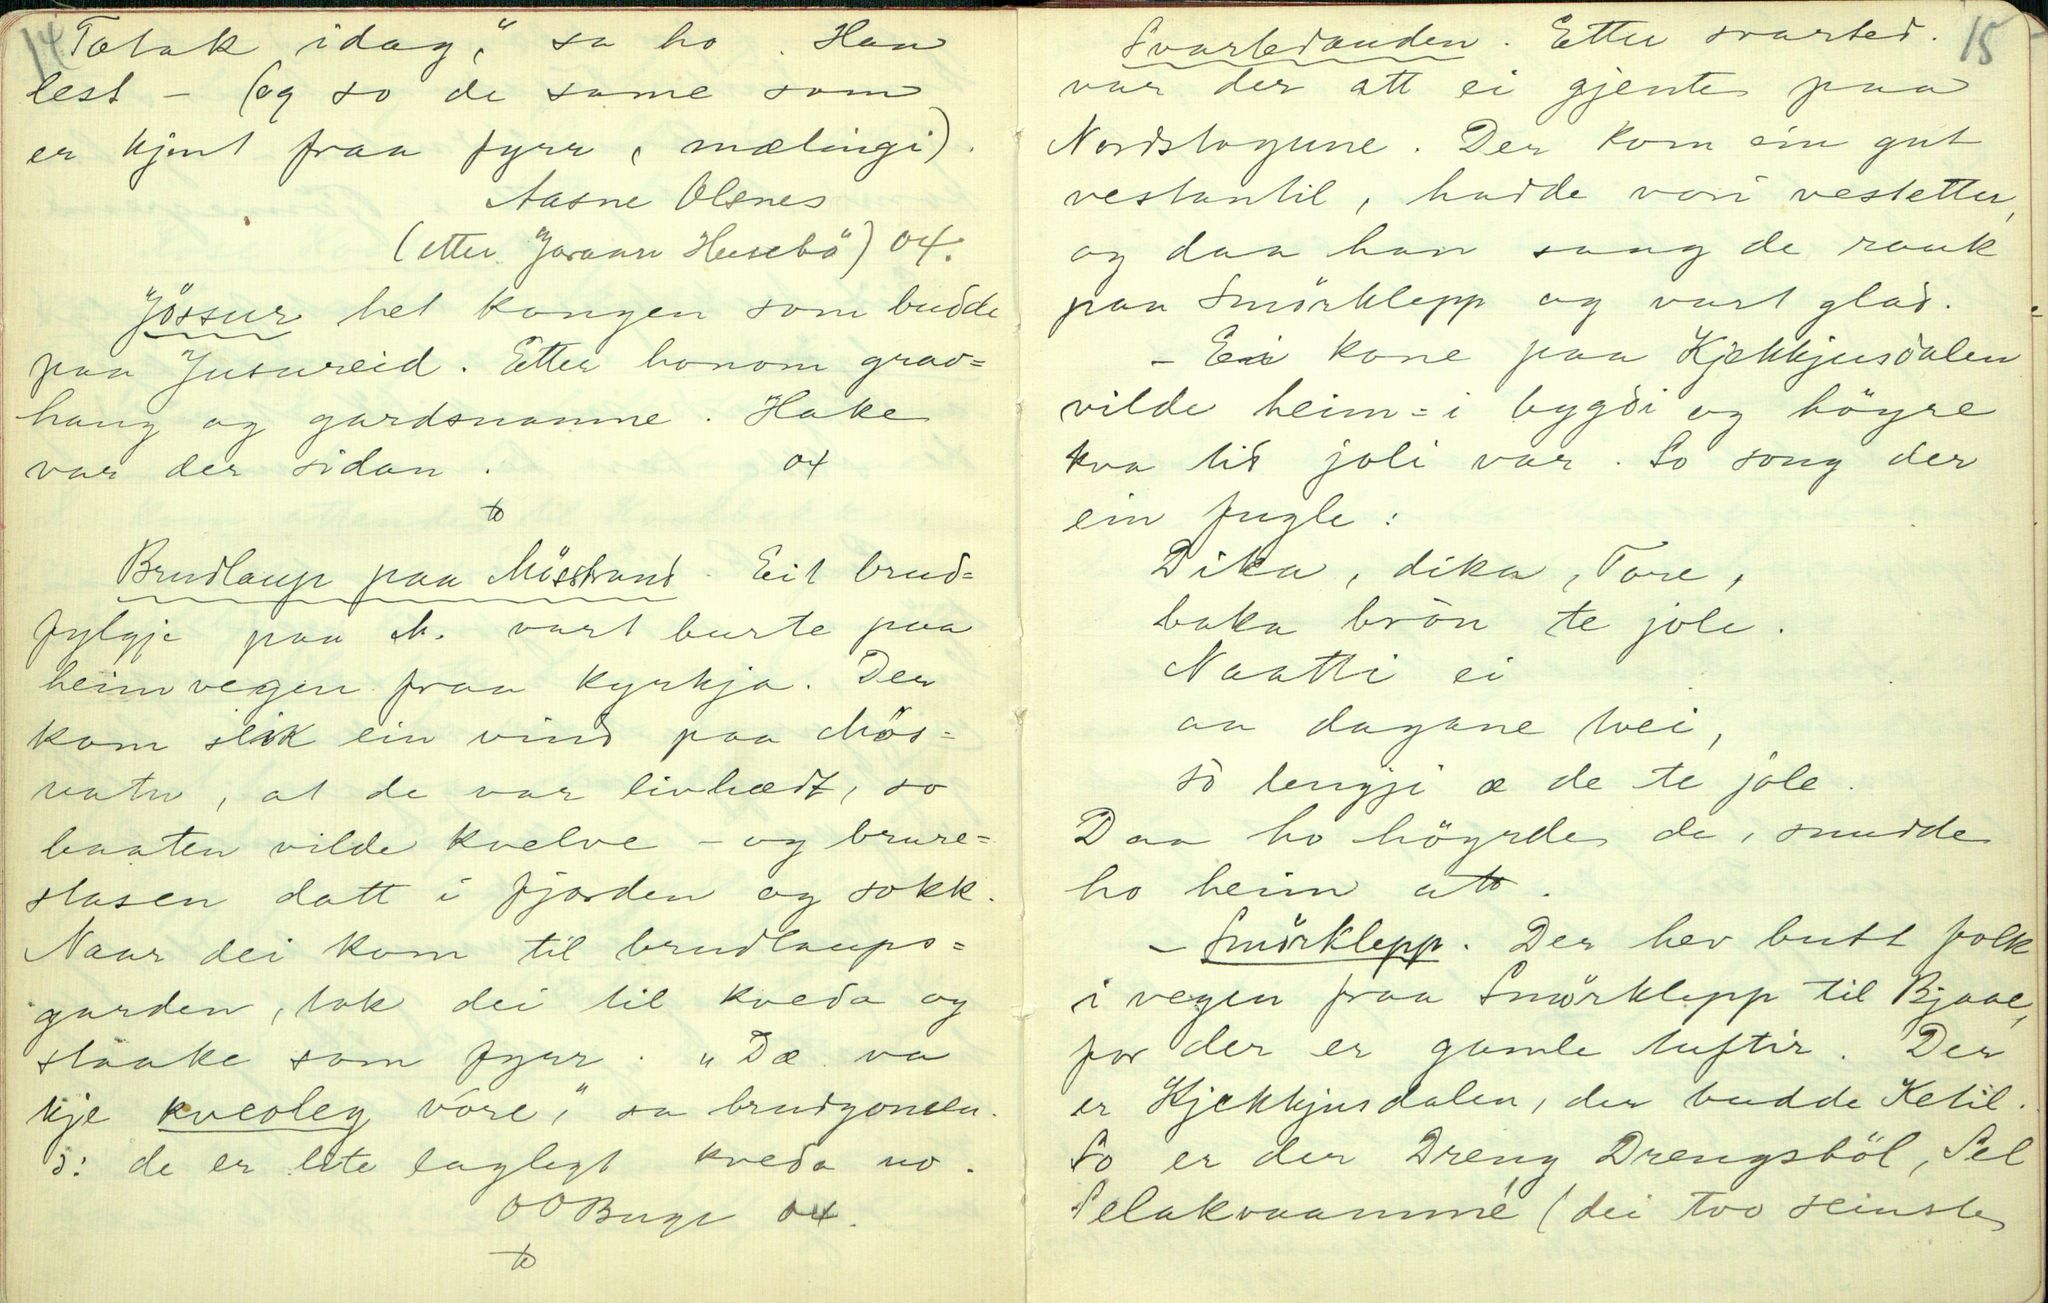 14 Tætak idag," sa ho. Han
lest - (og so de same som
er kjent fraa fyrr, mælingi).
Aasne Olsnes
(etter Joraan Husebö) 04.
Jössur het kongen som budde
paa Jusureid. Etter honom grav=
haug og gardsnamne. Hake
var der sidan. 04
Brudlaup paa Mösstrand. Eit brud=
fylgje paa M. vart burte paa
heimvegen fraa kyrkja. Der
kom slik ein vind paa Mös=
vatn, at de var livhædt, so
baaten vilde kvelve - og brure=
stasen datt i fjorden og sokk.
Naar dei kom til brudlaups=
garden, tok dei til kveda og
staake som fyrr. „Dæ va
kje kveoleg vore," sa brudgomen.
ɔ: de er lite laglegt kveda no.
O O Buge 04.
15
Svartedauden. Etter svarted.
var der att ei gjente paa
Nordstogune. Der kom ein gut
vestantil, hadde vori vestetter,
og daa han saag de rauk
paa Smörklepp og vart glad.
- Ei kone paa Kjekkjusdalen
vilde heim=i bygdi og höyre
kva tid joli var. So song der
ein fugle:
Dika, dika, Tore,
baka brön te jole.
Naatti ei
aa dagane tvei,
sò lengji æ de te jole.
Daa ho höyrde de, snudde
ho heim att.
- Smörklepp. Der hev butt folk
i vegen fraa Smörklepp til Bjaae,
for der er gamle tuftir. Der
er Kjekkjusdalen, der budde Ketil.
So er der Dreng Drengsböl, Sel
Selakvaamme (dei tvo seinste